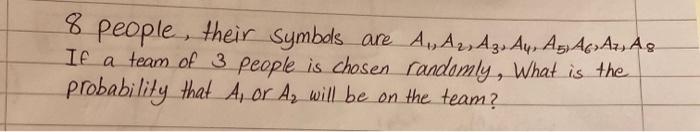 8 people, their symbols are A₁, A₂, A₃, A₄, A₅, A₆, A₇, A₈
If a team of 3 people is chosen randomly, What is the
probability that A₁ or A₂ will be on the team?